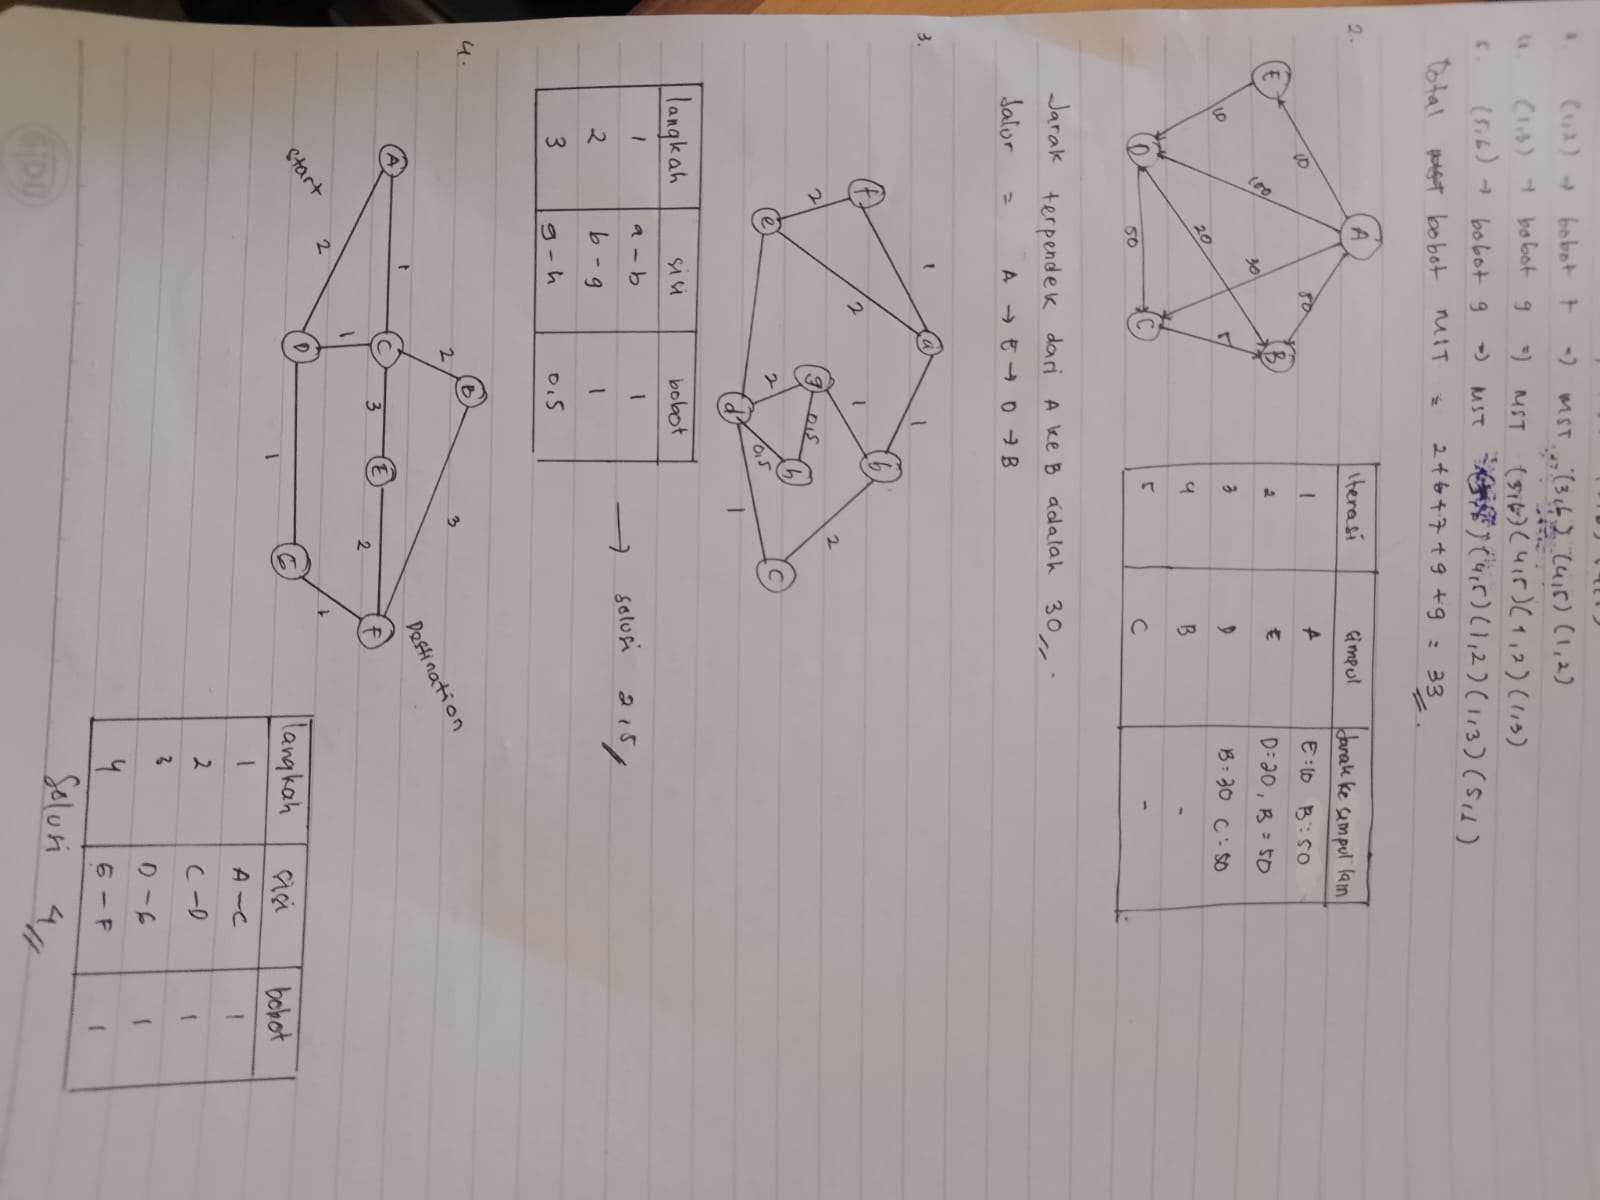 (1,2) → bobot 7 => MST (3,6) (4,5) (1,2)
4. (1,3) → bobot 9 => MST (3,6) (4,5) (1,2) (1,3)
5. (5,6) → bobot 9 => MST (4,5) (1,2) (1,3) (5,6)
Total bobot MST = 2+6+7+9+9 = 33
2.
A
E
D
C
B
10
10
100
30
50
20
50
5
iterasi simpul Jarak ke simpul lain
1 A E=10 B=50
2 E D=20, B=50
3 D B=30 C=50
4 B -
5 C -
Jarak terpendek dari A ke B adalah 30
Jalur = A → E → D → B
3.
f
e
a
g
d
h
b
c
2
1
2
1
2
0,5
1
0,5
1
2
langkah sisi bobot
1 a-b 1
2 b-g 1
3 g-h 0,5
→ solusi 2,5
4.
A
start
D
C
B
E
G
F
Destination
2
1
1
2
3
3
1
2
1
langkah sisi bobot
1 A-C 1
2 C-D 1
3 D-G 1
4 G-F 1
Solusi 4
sidu